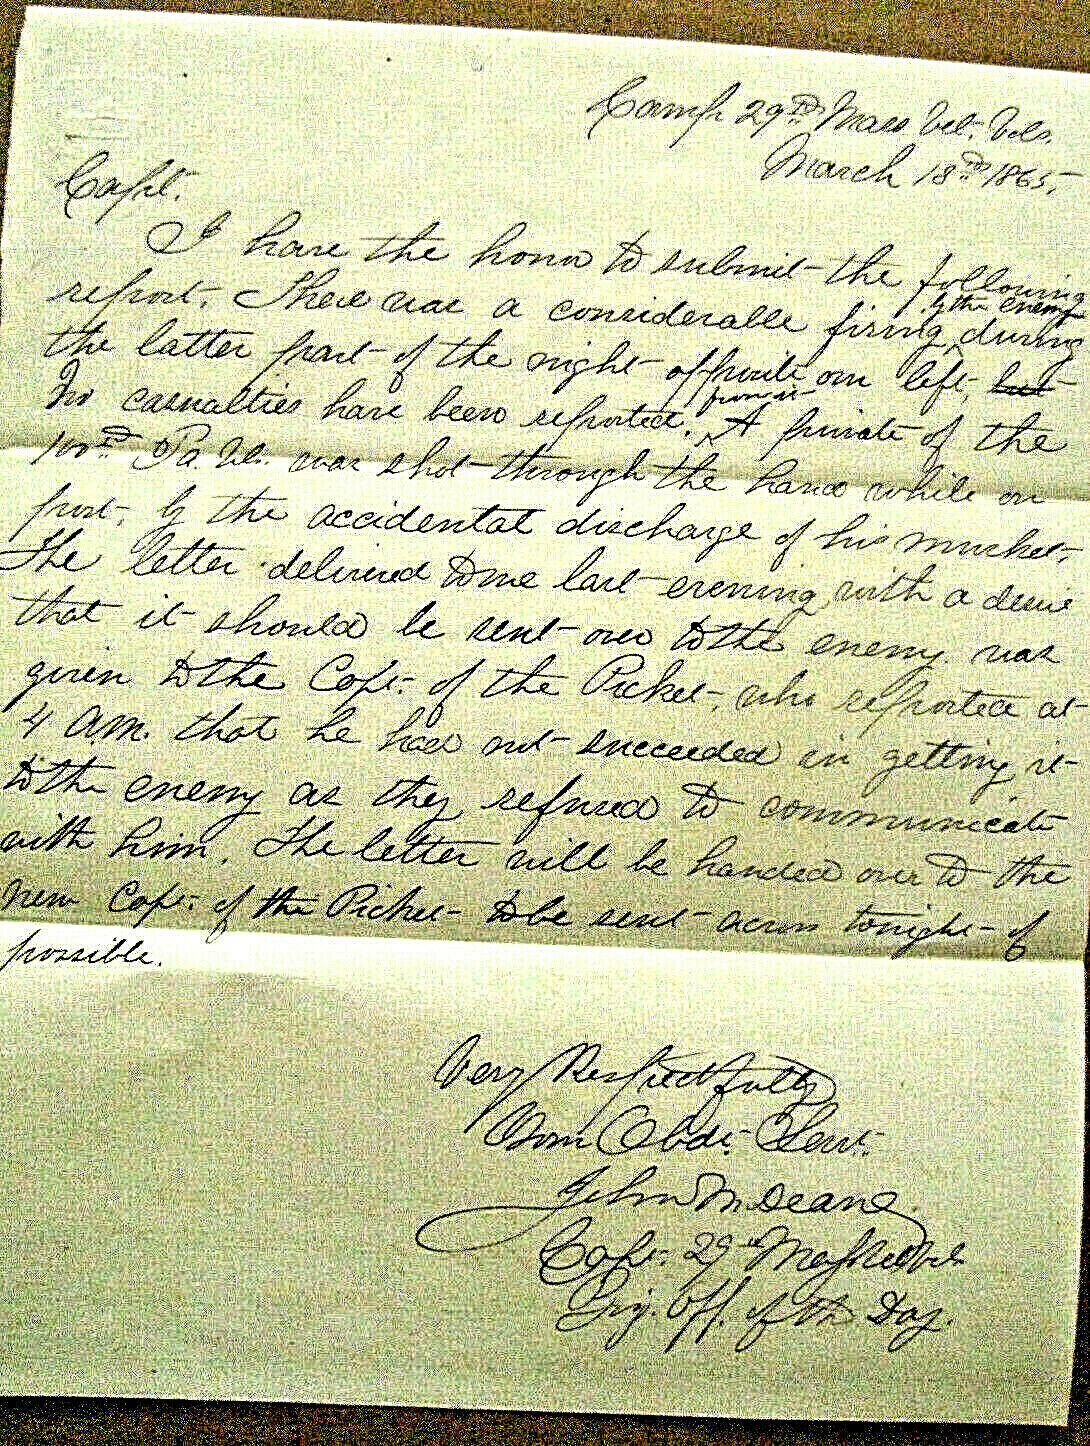 Camp 29th Mass Vet. Vols.
March 18th 1865.
Capt.
I have the honor to submit the following
report. There was a considerable firing by the enemy during
the latter part of the night opposite our left, but
No casualties have been reported. A private of the
100th Pa. Vols. was shot through the hand while on
post, by the accidental discharge of his musket.
The letter delivered to me last evening with a desire
that it should be sent over to the enemy was
given to the Capt. of the Picket, who reported at
4 A.M. that he had not succeeded in getting it
to the enemy as they refused to communicate
with him. The letter will be handed over to the
new Capt. of the Picket to be sent across tonight if
possible.
Very Respectfully
Your Obdt. Servt.
John M. Deane
Capt. 29th Mass Vet Vols
Brig. Off. of the Day.